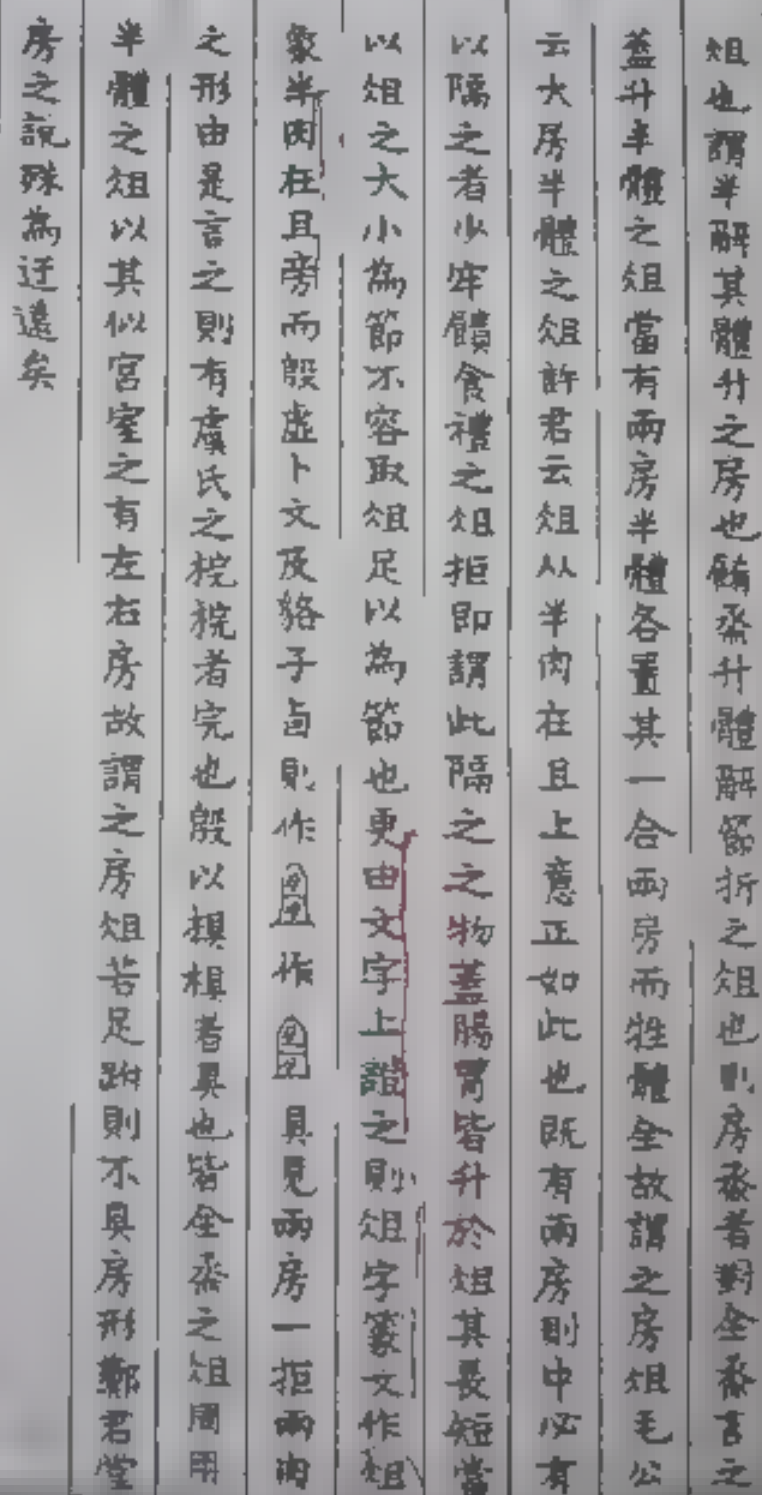 俎也謂半解其體升之房也餚烝升體解節折之俎也則房烝者對全烝言之
蓋升半體之俎當有兩房半體各置其一合兩房而牲體全故謂之房俎毛公
云大房半體之俎許君云俎从半肉在且上意正如此也既有兩房則中必有
以隔之者少牢饋食禮之俎拒即謂此隔之之物蓋腸胃皆升於俎其長短當
以俎之大小為節不容取俎足以為節也更由文字上證之則俎字篆文作俎
象半肉在且旁而殷虛卜文及貉子卣則作作具見兩房一拒兩肉
之形由是言之則有虞氏之梡梡者完也殷以椇椇者具也皆全烝之俎周用
半體之俎以其似宮室之有左右房故謂之房俎若足跗則不具房形鄭君堂
房之說殊為迂遠矣